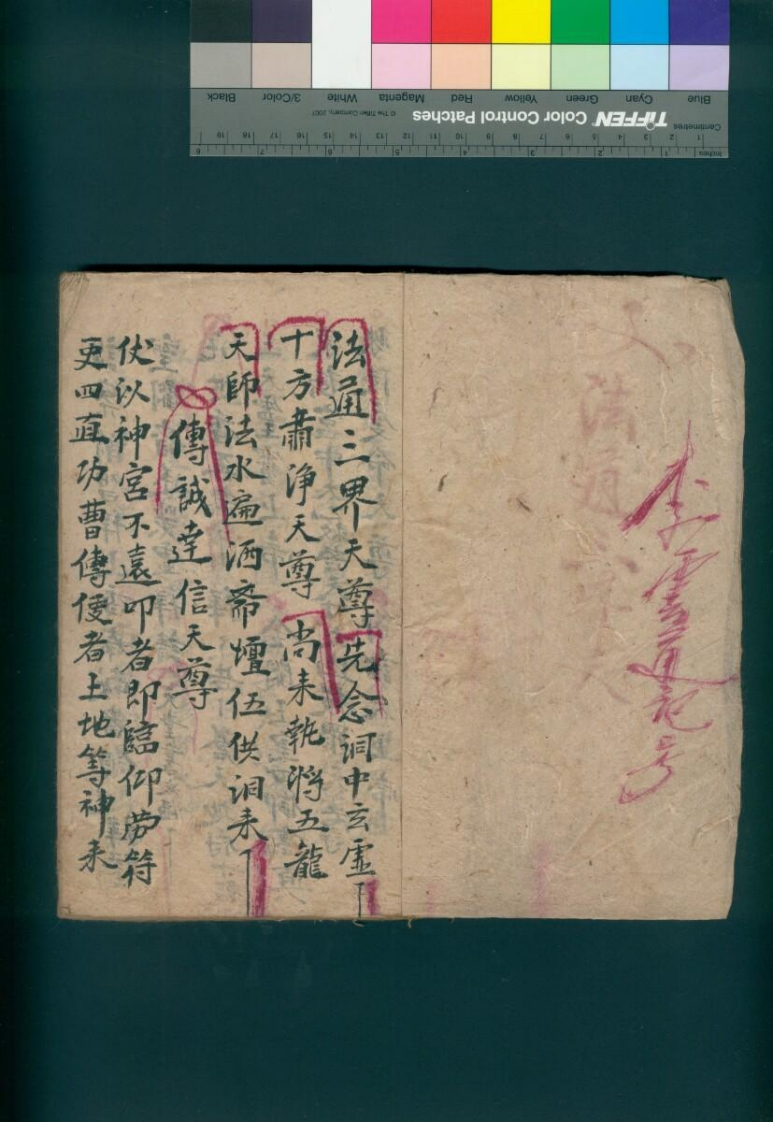 Blue
Cyan
Green
Yellow
Red
Magenta
White
3/Color
Black
TIFFEN Color Control Patches
© The Tiffen Company, 2007
Centimetres
Inches
李雲通記号
法通三界天尊先念洞中玄虛
十方肅净天尊尚来執將五龍
天師法水遍洒斋壇伍供泪来
傳誠達信天尊
伏以神宮不遠叩者即臨仰劳符
吏四直功曹傳使者土地等神来